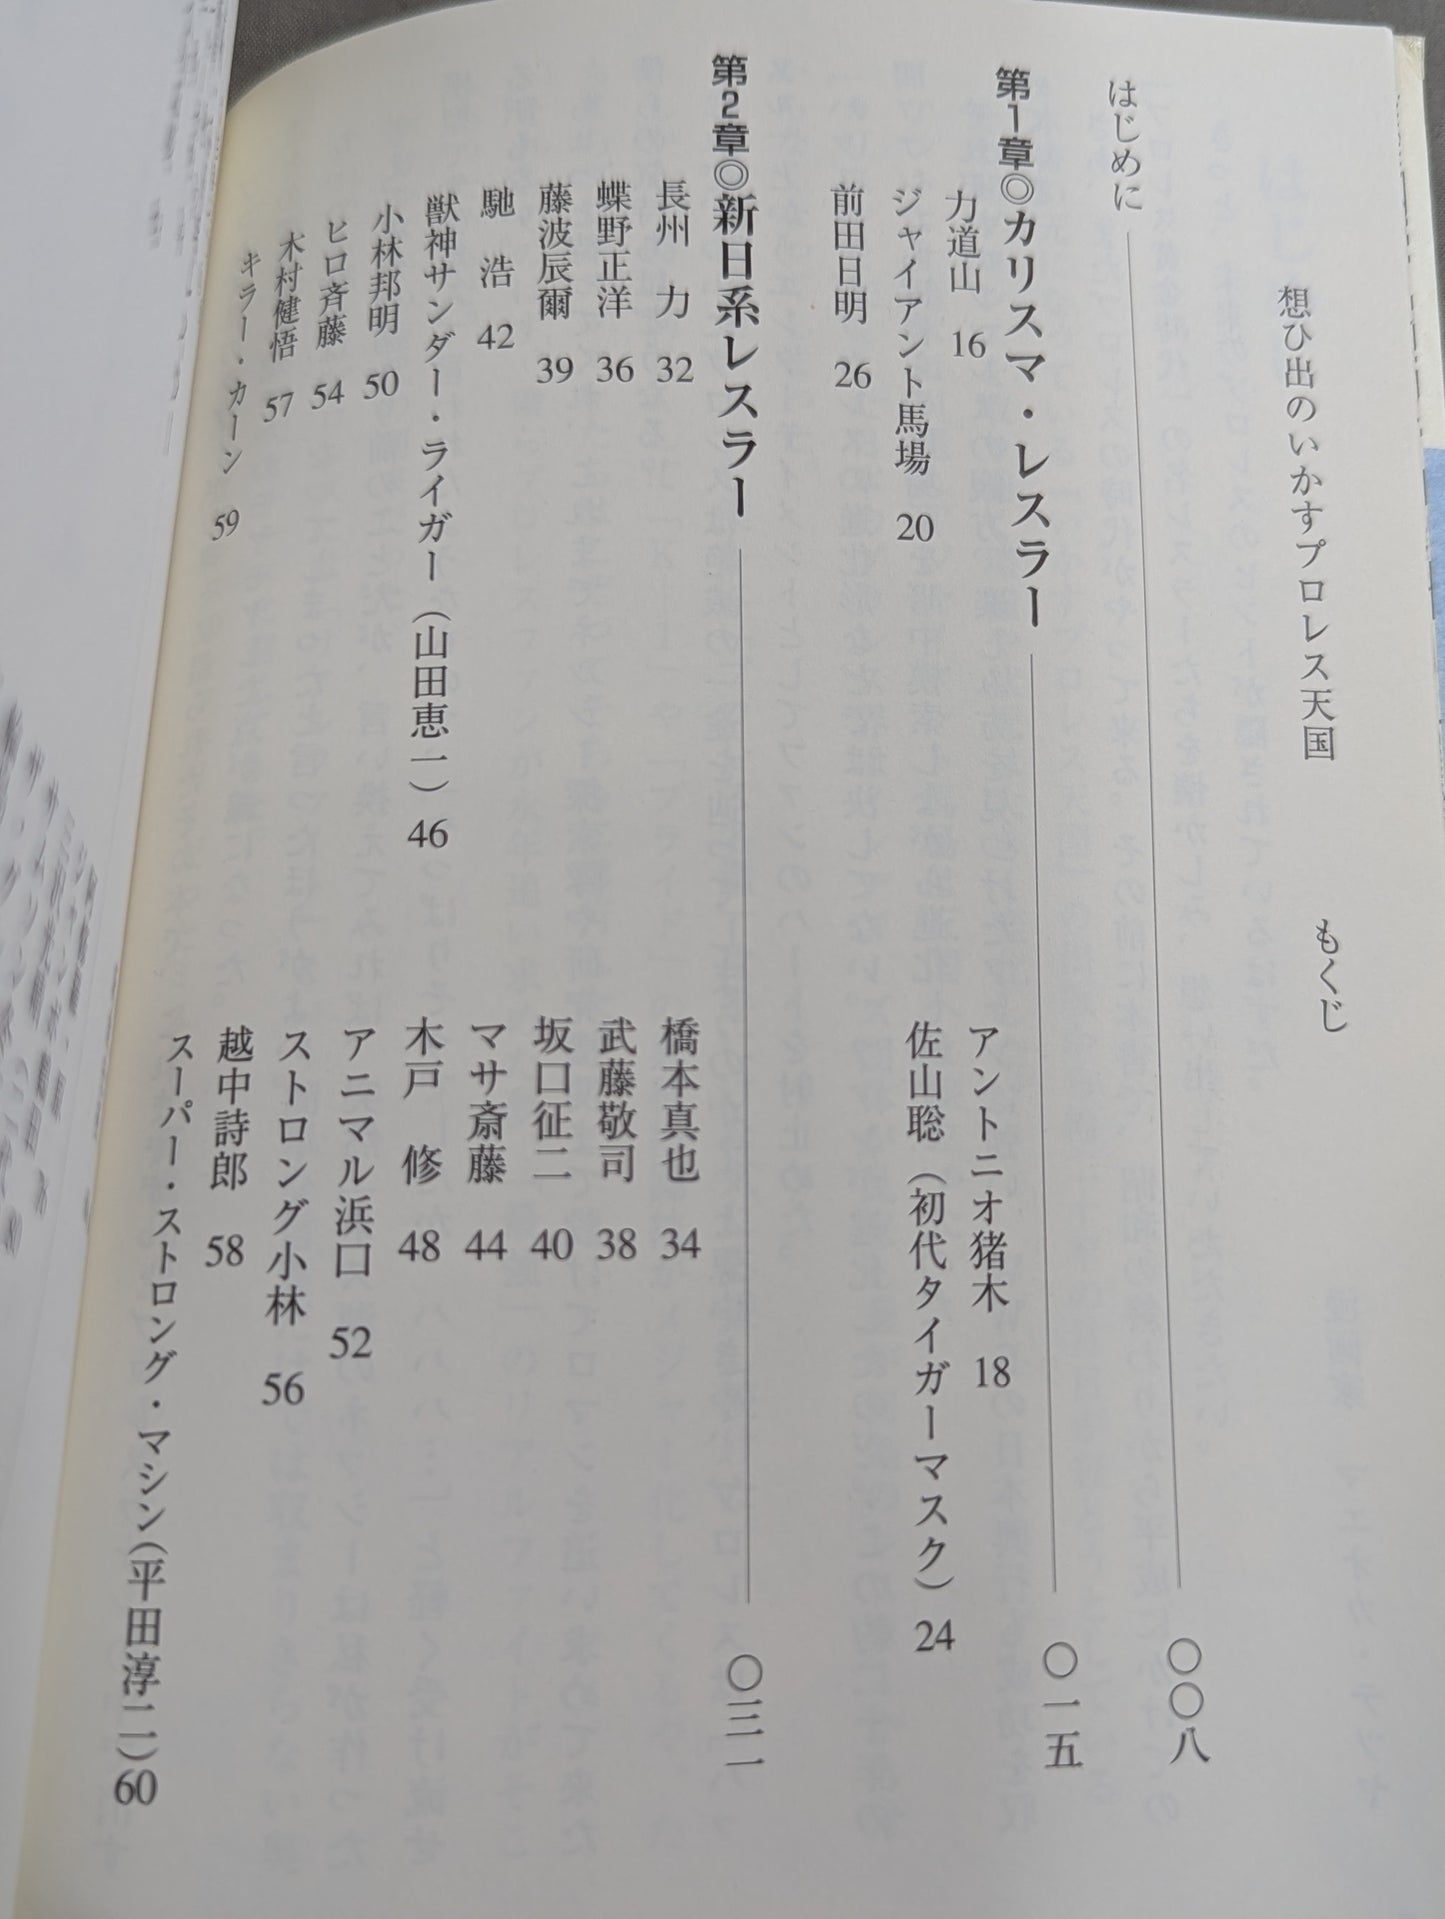 想ひ出のいかすプロレス天国 もくじ
はじめに 〇〇八
第1章◎カリスマ・レスラー 〇一五
力道山 16
アントニオ猪木 18
ジャイアント馬場 20
佐山聡（初代タイガーマスク） 24
前田日明 26
第2章◎新日系レスラー 〇三一
長州 力 32
橋本真也 34
蝶野正洋 36
武藤敬司 38
藤波辰爾 39
坂口征二 40
馳 浩 42
マサ斎藤 44
獣神サンダー・ライガー（山田恵一） 46
木戸 修 48
小林邦明 50
アニマル浜口 52
ヒロ斉藤 54
ストロング小林 56
木村健悟 57
越中詩郎 58
キラー・カーン 59
スーパー・ストロング・マシン（平田淳二） 60